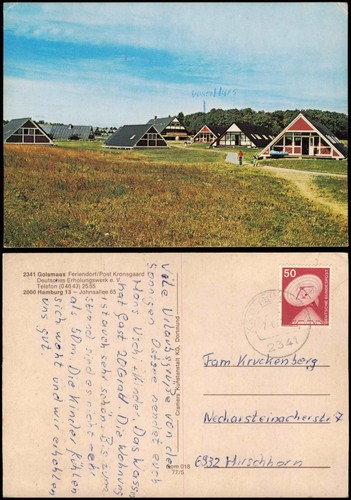 Unser Haus
2341 Golsmaas Feriendorf/Post Kronsgaard
Deutsches Erholungswerk e. V.
Telefon (04643) 2535
2000 Hamburg 13 – Johnsallee 65
Cramers Kunstanstalt KG, Dortmund
Viele Urlaubsgrüße von der
sonnigen Ostsee sendet euch
Hans Uschi + Kinder. Das Wasser
hat fast 20 Grad. Die Wohnung
ist auch sehr schön. Bis zum
Strand sind es nicht mehr
als 50m. Die Kinder fühlen
sich wohl und wir erholen
uns gut.
50
DEUTSCHE BUNDESPOST
2341
Fam Kruckenberg
Neckarsteinacherstr 7
6932 Hirschhorn